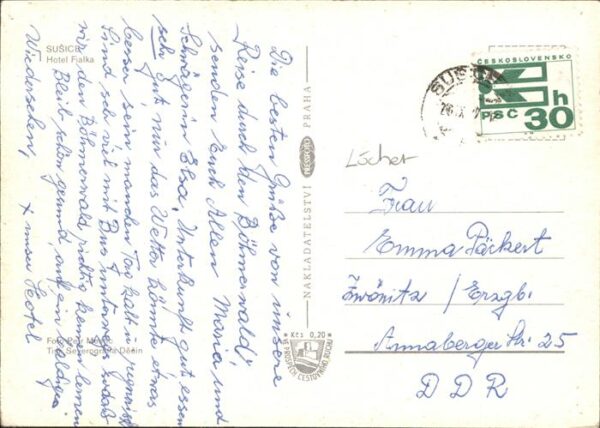 SUŠICE
Hotel Fialka
Die besten Grüße von unsere
Reise durch den Böhmerwald,
senden Euch Allen Mina und
Schwägerin Elsa, Unterkunft gut, essen
sehr gut, nur das Wetter könnte etwas
besser sein, mancher Tag kalt u. regnerisch
Sind sehr viel mit Bus unterwegs, sodaß
wir den Böhmerwald richtig kennen lernen
Bleib schön gesund, auf ein baldiges
Wiedersehen,
x unser Hotel
Foto Petr
Tisk Severografia Děčín
NAKLADATELSTVÍ PRESSFOTO PRAHA
Kčs 0,20
VE PROSPĚCH CESTOVNÍHO RUCHU
ČESKOSLOVENSKO
PSČ
30 h
SUŠICE
Löchert
Frau
Emma Päckert
Zwönitz / Erzgb.
Annaberger Str. 25
DDR